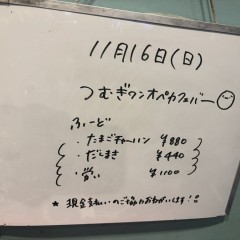 11月16日(日)
つむぎワンオペカフェバー
ふーど
・たまごチャーハン ¥880
・だしまき ¥440
・賄い ¥1100
* 現金払いのご協力おねがいします!!